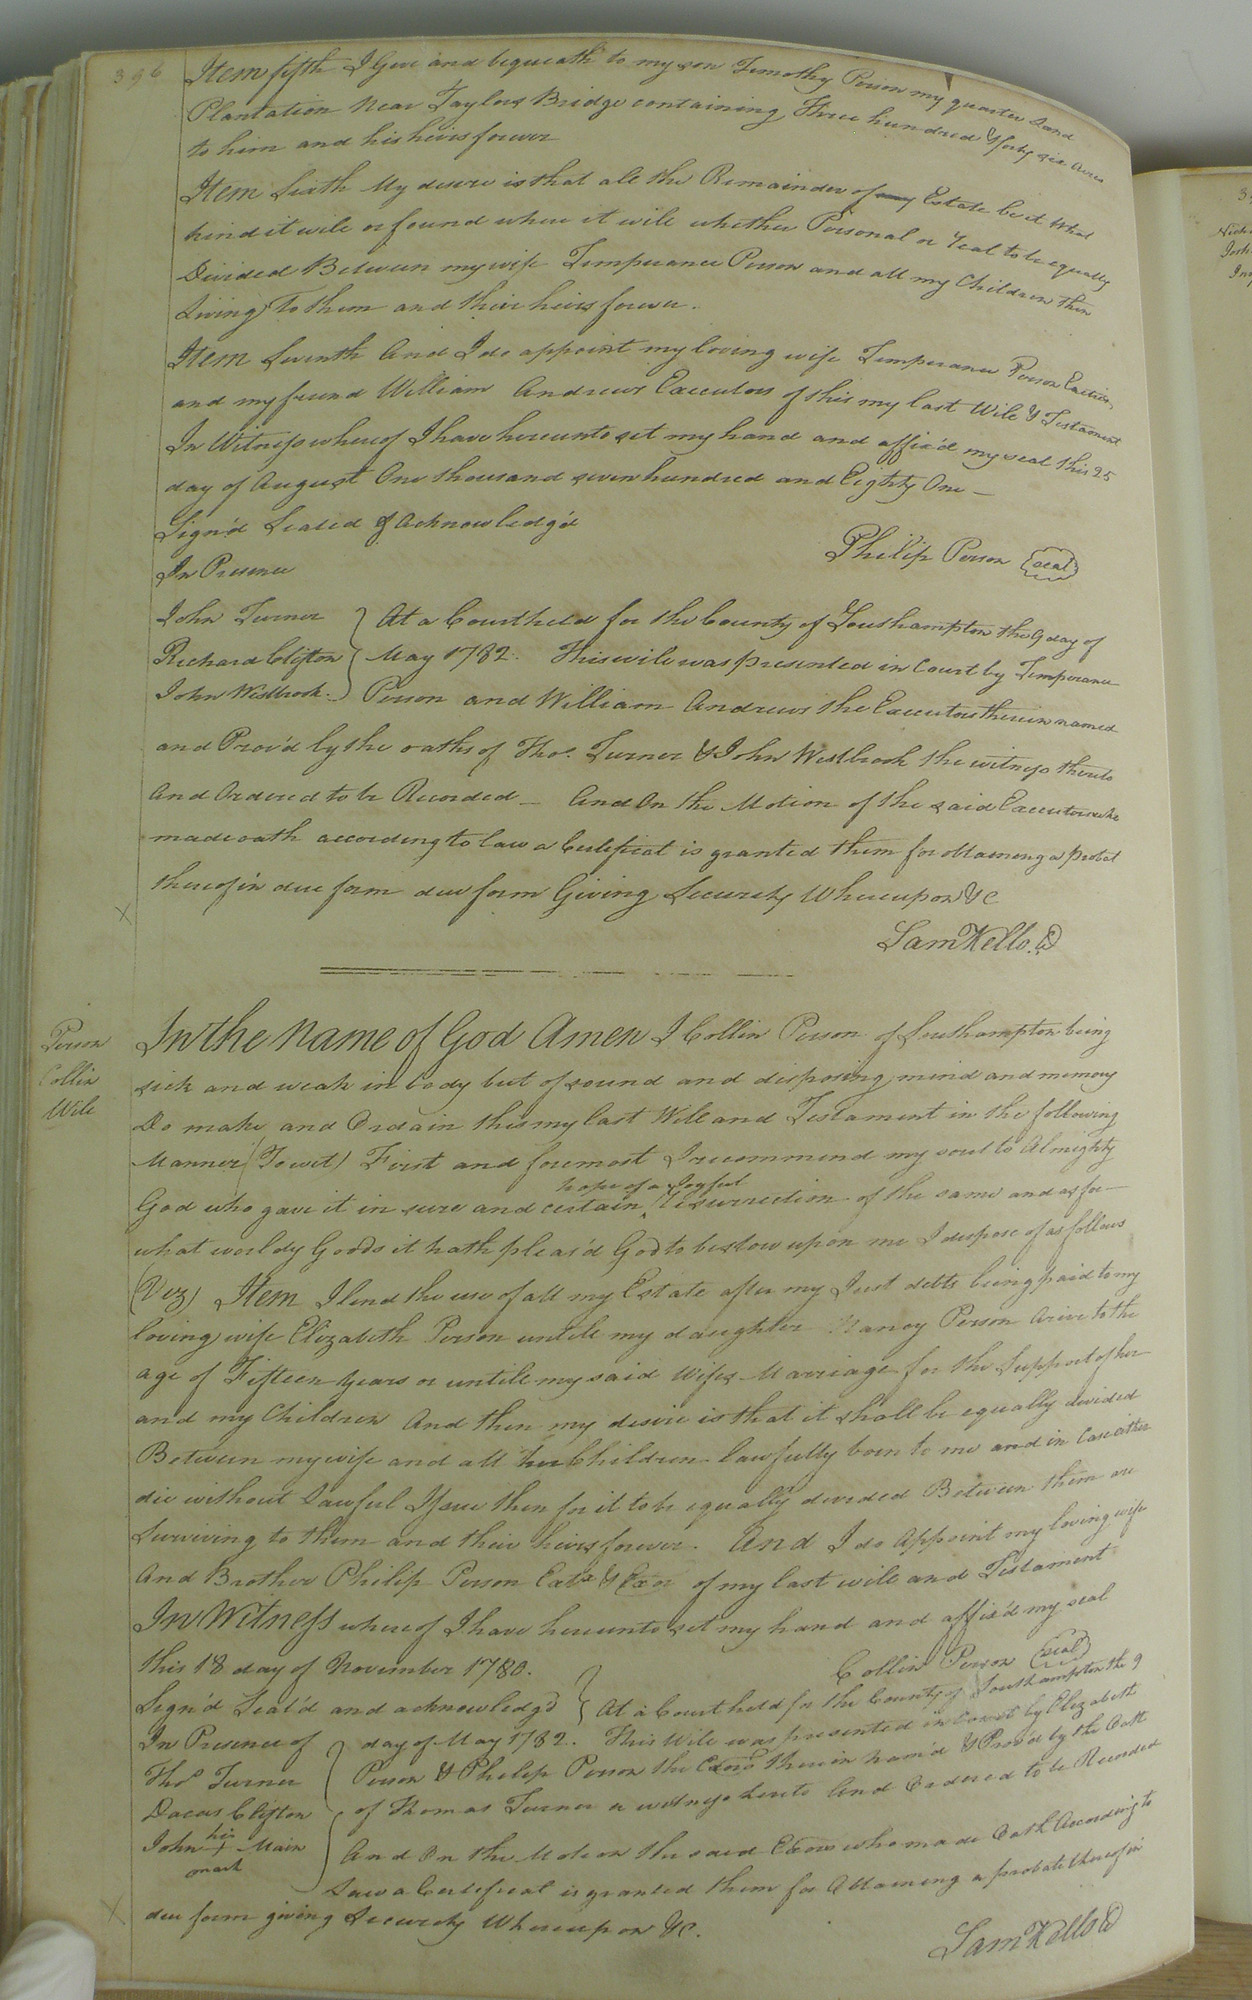 396
Item fifth I Give and bequeath to my son Timothy Person my quarter Land
Plantation Near Taylors Bridge containing Three hundred & forty six Acres
to him and his heirs forever
Item Sixth My desire is that all the Remainder of my Estate be it What
kind it wile or found where it wile whether Personal or Real to be equally
Divided Between my wife Temperance Person and all my Children then
Living To them and their heirs forever.
Item Seventh And I do appoint my loving wife Temperance Person
and my friend William Andrews Executors of this my last Wile & Testament
In Witness whereof I have hereunto set my hand and affix'd my seal this 25
day of August One thousand seven hundred and Eighty One —
Sign'd Sealed & Acknowledg'd
In Presence
Philip Person (seal)
John Turner
Richard Clifton
John Westbrook.
At a Court held for the County of Southampton the 9 day of
May 1782. This wile was presented in Court by Temperance
Person and William Andrews the Executors therein named
and Prov'd by the oaths of Thos. Turner & John Westbrook the witness thereto
And Ordered to be Recorded — And On the Motion of the said Executors who
made oath according to law a Certificat is granted them for obtaining a probat
thereof in due form due form Giving Security Whereupon &c
X
Sam Kello.
Person
Collin
Wile
In the Name of God Amen I Collin Person of Southampton being
sick and weak in body but of sound and disposing mind and memory
Do make and Ordain this my last Wile and Testament in the following
Manner (Towit) First and foremost I recommend my soul to Almighty
hope of a Joyful
God who gave it in sure and certain Resurrection of the same and as for
what worldy Goods it hath pleas'd God to bestow upon me I dispose of as follows
(Viz) Item I lend the use of all my Estate after my Just debts being paid to my
loving wife Elizabeth Person untile my daughter Nancy Person Arive to the
age of Fifteen years or untile my said Wifes Marriage for the Support of her
and my Children And then my desire is that it shall be equally divided
Between my wife and all her Children lawfully born to me and in Case either
die without Lawful Issue then for it to be equally divided Between them
Surviving to them and their heirs forever. And I do Appoint my loving wife
And Brother Philip Person Extx & Exor of my last wile and Testament
In Witness whereof I have hereunto set my hand and affix'd my seal
this 18 day of November 1780.
Collin Person (seal)
Sign'd Seal'd and acknowledg'd
In Presence of
Thos Turner
Dacus Clifton
his
John + Main
mark
At a Court held for the County of Southampton the 9
day of May 1782. This Wile was presented in Court by Elizabeth
Person & Philip Person the Exors therein nam'd & Prov'd by the Oath
of Thomas Turner a witness hereto And Ordered to be Recorded
And On the Motion the said Exors who made Oath According to
Law a Certificat is granted them for Obtaining a probate thereof in
due form giving Security Whereupon &c.
X
Sam Kello